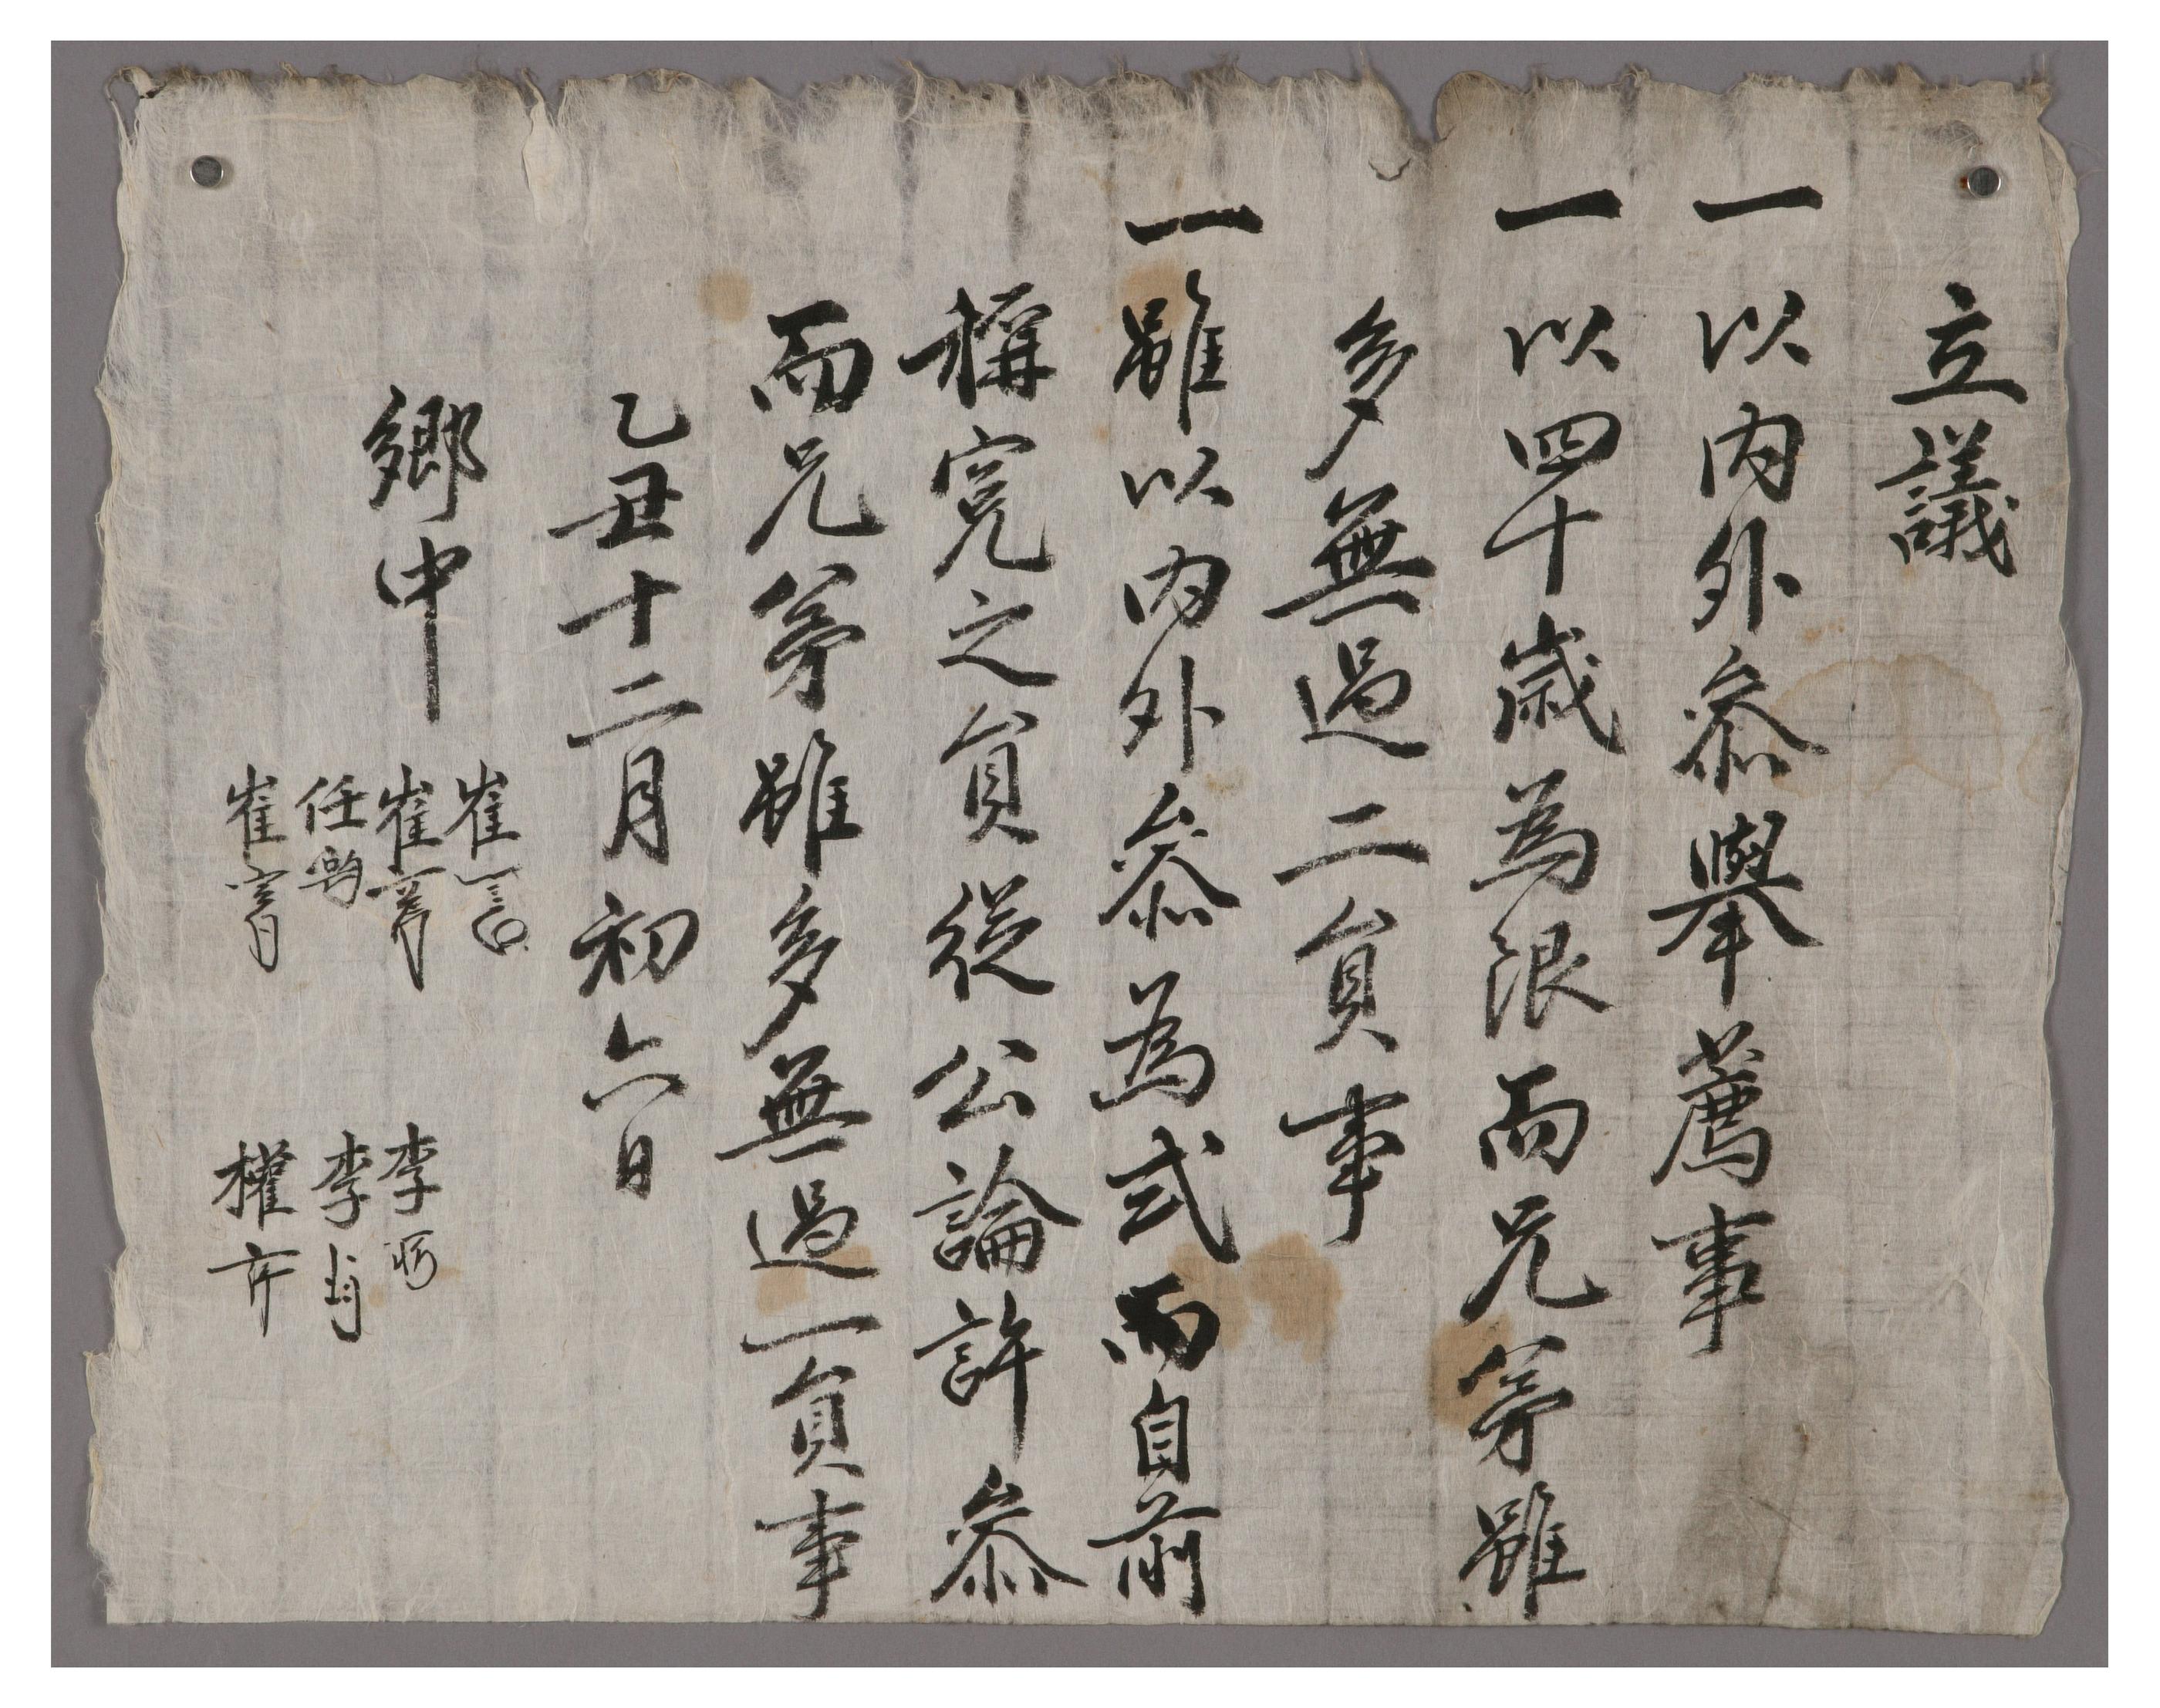 立議
一以内外叅擧薦事
一以四十歲為限而兄弟雖
多無過二員事
一雖以内外叅為式而自前
稱寃之員從公論許叅
而兄弟雖多無過一員事
乙丑十二月初六日
鄕中
崔
崔 李
任 李
崔 權